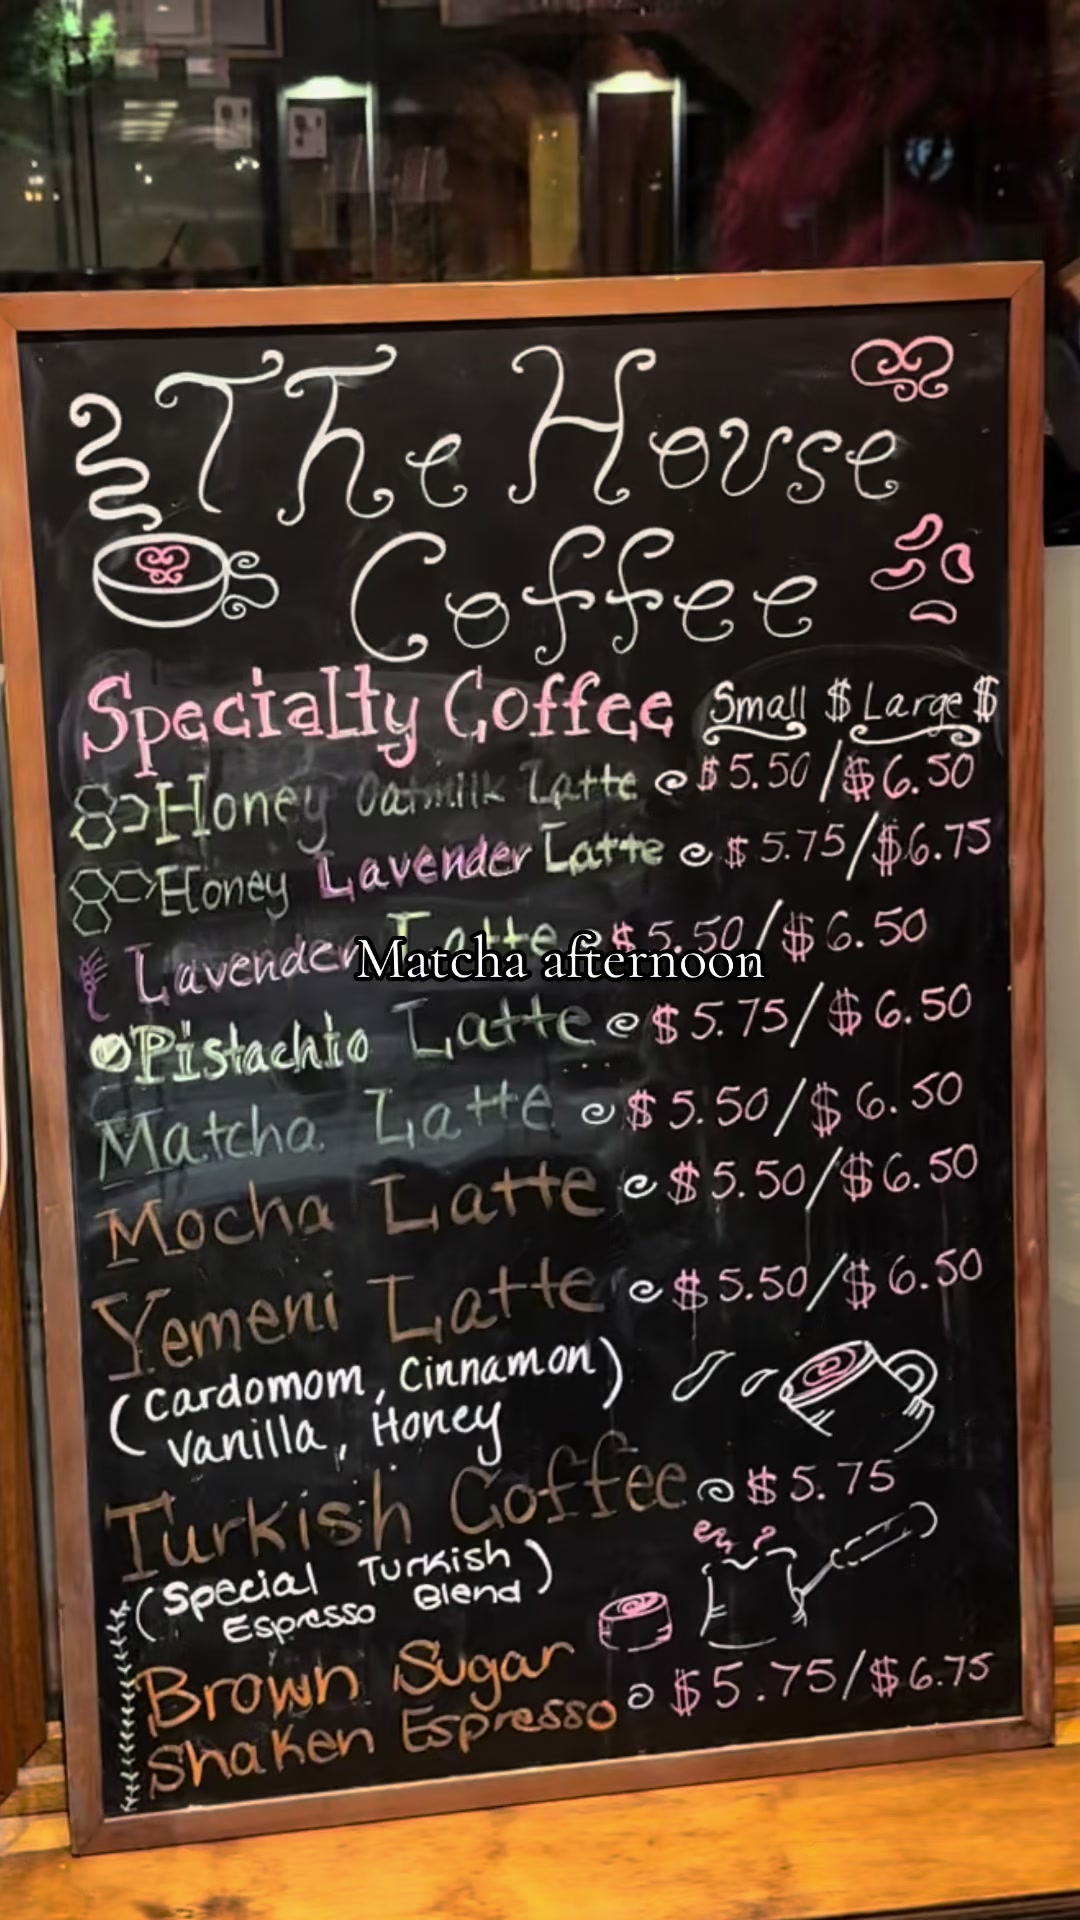 The House
Coffee
Specialty Coffee Small $ Large $
Honey Oatmilk Latte $5.50/$6.50
Honey Lavender Latte $5.75/$6.75
Lavender Latte $5.50/$6.50
Matcha afternoon
Pistachio Latte $5.75/$6.50
Matcha Latte $5.50/$6.50
Mocha Latte $5.50/$6.50
Yemeni Latte $5.50/$6.50
(Cardomom, Cinnamon)
Vanilla, Honey
Turkish Coffee $5.75
(Special Turkish)
Espresso Blend
Brown Sugar
Shaken Espresso $5.75/$6.75